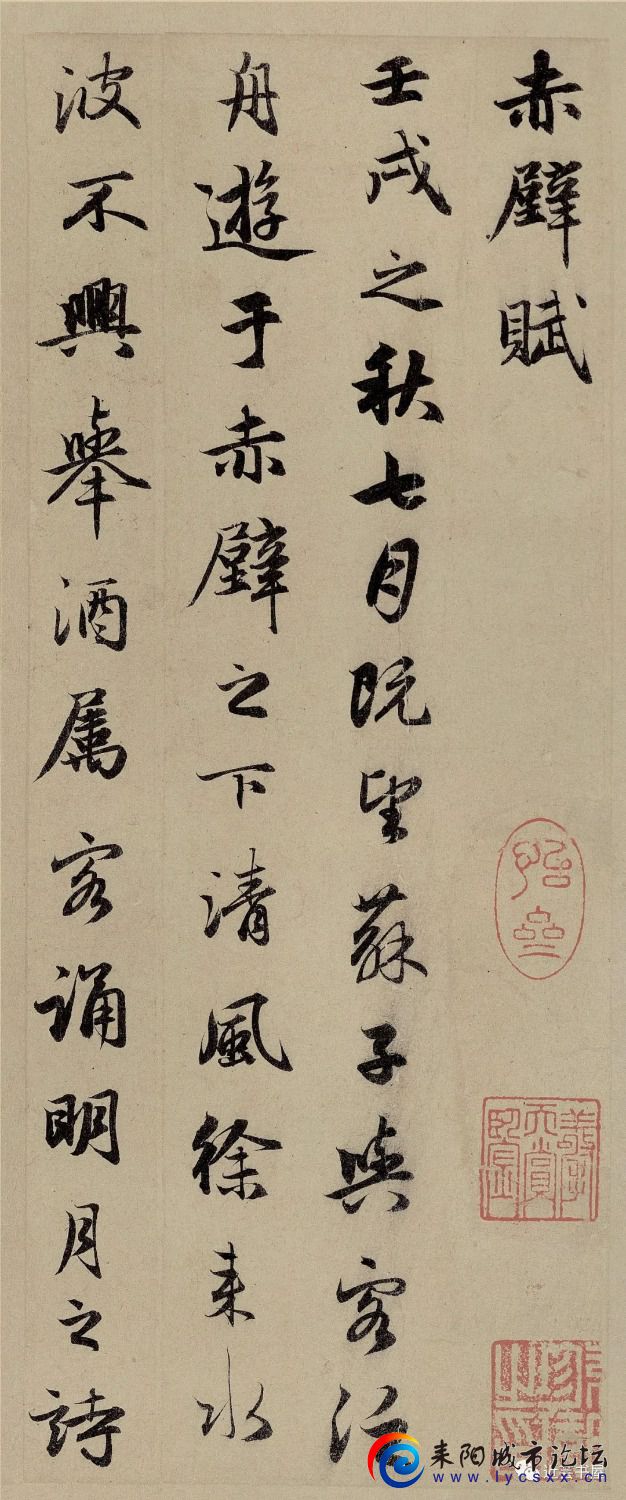 赤壁賦
壬戌之秋七月既望蘇子與客泛
舟遊于赤壁之下清風徐来水
波不興舉酒属客誦明月之詩
耒阳城市论坛
www.lycsxx.com